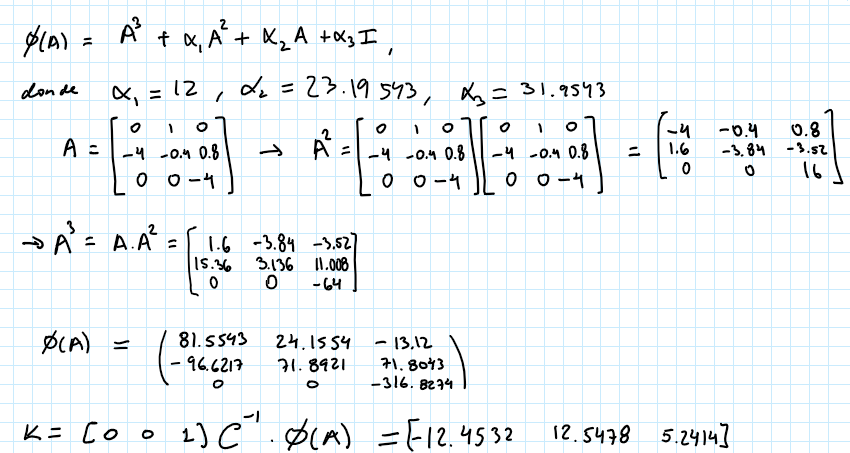 φ(A) = A³ + α₁A² + α₂A + α₃I,
donde α₁ = 12, α₂ = 23.19543, α₃ = 31.9543
A = [0 1 0; -4 -0.4 0.8; 0 0 -4] → A² = [0 1 0; -4 -0.4 0.8; 0 0 -4][0 1 0; -4 -0.4 0.8; 0 0 -4] = [-4 -0.4 0.8; 1.6 -3.84 -3.52; 0 0 16]
→ A³ = A.A² = [1.6 -3.84 -3.52; 15.36 3.136 11.008; 0 0 -64]
φ(A) = (81.5543 24.1554 -13.12; -96.6217 71.8921 71.8043; 0 0 -316.8274)
K = [0 0 1] C⁻¹ . φ(A) = [-12.4532 12.5478 5.2414]